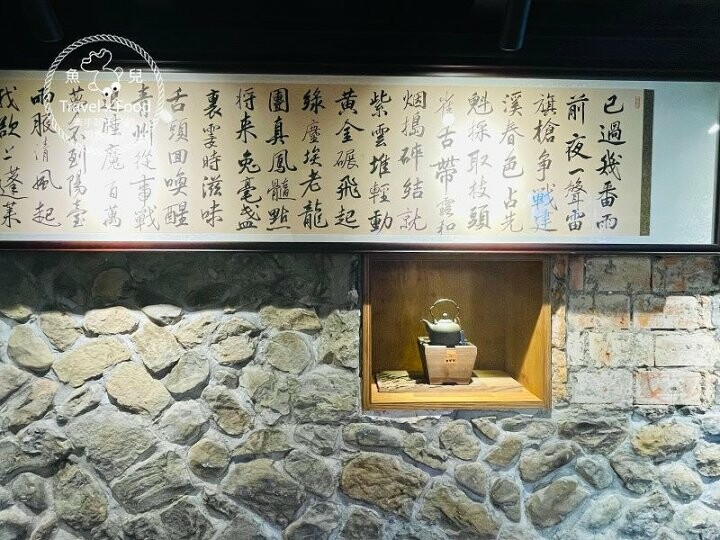 已過幾番雨
前夜一聲雷
旗槍爭戰建
溪春色占先
魁採取枝頭
雀舌帶露和
烟搗碎結就
紫雲堆輕動
黃金碾飛起
綠塵埃老龍
團真鳳髓點
将来兔毫盞
裏霎時滋味
舌頭囬喚醒
青州從事戰
睡魔百萬
不到陽臺
兩腋清風起
我欲上蓬萊
魚兒
Travel Food